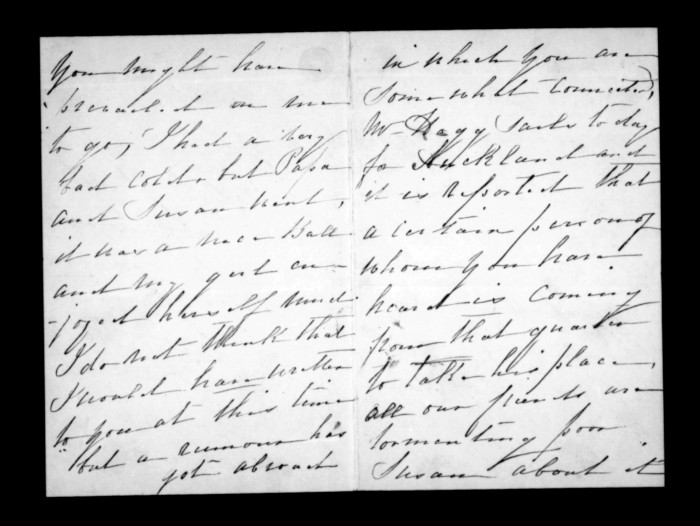 You might have
prevailed on me
to go, I had a very
bad cold but Papa
and Susan went,
it was a nice Ball
and my guest en-
-joyed herself much
I do not think that
I would have written
to you at this time
but a rumour has
got abroad
in which You are
somewhat connected,
Mr Hagg sails to day
for Auckland and
it is reported that
a certain person of
whom you have
heard is coming
from that quarter
to take his place,
all our friends are
tormenting poor
Susan about it